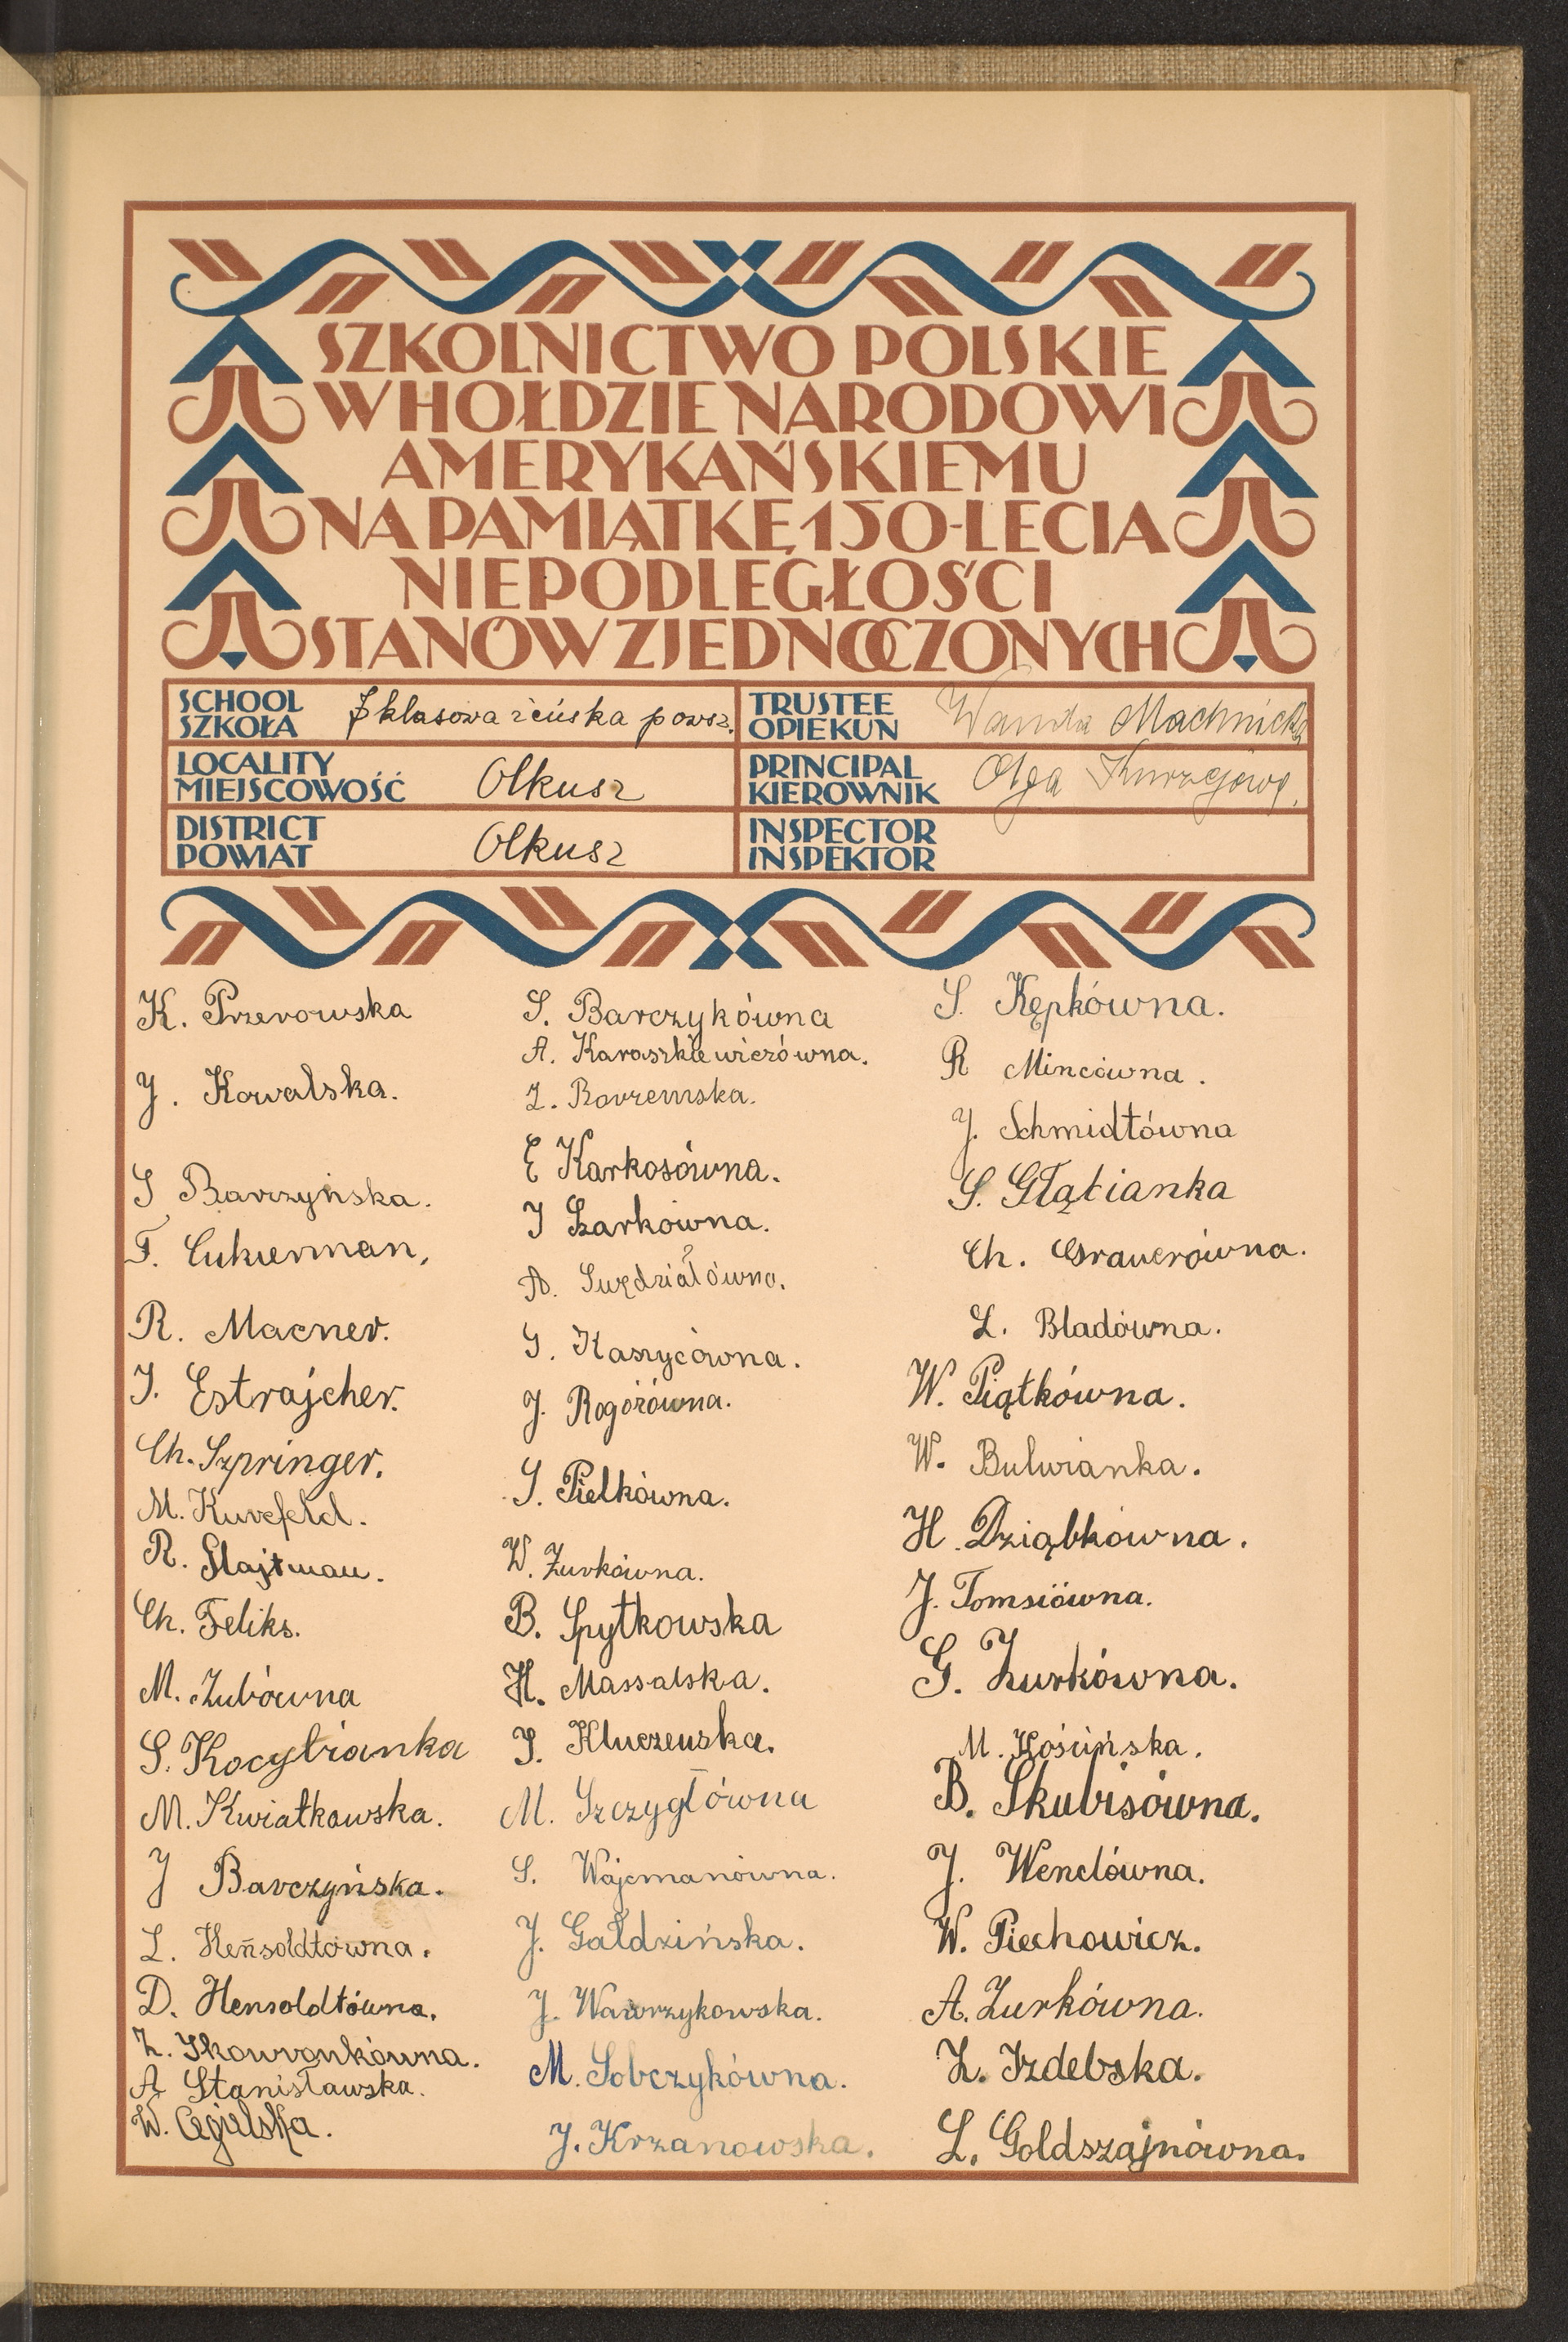 SZKOLNICTWO POLSKIE
W HOŁDZIE NARODOWI
AMERYKAŃSKIEMU
NA PAMIĄTKĘ 150-LECIA
NIEPODLEGŁOŚCI
STANÓW ZJEDNOCZONYCH
SCHOOL
SZKOŁA
7 klasowa żeńska powsz.
TRUSTEE
OPIEKUN
Wanda Machnicka
LOCALITY
MIEJSCOWOŚĆ
Olkusz
PRINCIPAL
KIEROWNIK
Olga
DISTRICT
POWIAT
Olkusz
INSPECTOR
INSPEKTOR
K. Przerowska
J. Kowalska.
S Barczyńska.
F. Cukierman,
R. Macner.
J. Estrajcher.
Ch. Szpringer.
M. Kurcfeld.
R. Szlajtman.
Ch. Feliks.
M. Zubówna
S. Kocybianka
M. Kwiatkowska.
J Barczyńska.
L. Heńsoldtówna.
D. Hensoldtówna.
Z. Skowronkówna.
A Stanisławska.
W. Cegielska.
S. Barczykówna
A. Karaszkiewiczówna.
Z. Boremska.
E Karkosówna.
J Szarkówna.
A. Swędziałówna.
G. Kaszycówna.
J. Rogożówna.
S. Pielkówna.
W. Żurkówna.
B. Spytkowska
H. Massalska.
J. Kluczewska.
M. Szczygłówna
S. Wajcmanówna.
J. Gałdzińska.
J. Wawrzykowska.
M. Sobczykówna.
J. Krzanowska.
S. Kępkówna.
R Mincówna.
J. Schmidtówna
S. Głąbianka
Ch. Grauerówna.
L. Bladówna.
W. Piątkówna.
W. Bulwianka.
H. Dziąbkówna.
J. Tomsiówna.
G. Żurkówna.
M. Kosińska.
B. Skubisówna.
J. Wenclówna.
W. Piechowicz.
A. Żurkówna.
Z. Izdebska.
L. Goldszajnówna.